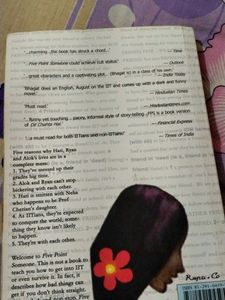 '...charming ...the book has struck a chord...'
- Time
'Five Point Someone could achieve cult status'
- Outlook
'...great characters and a captivating plot... (Bhagat) is in a class of his own.'
- India Today
'Bhagat does an English, August on the IIT and comes up with a dark and funny novel.'
- Hindustan Times
'Must read.'
- Hindustantimes.com
'...funny yet touching... peppy, informal style of story-telling...FPS is a book version of Dil Chahta Hai'
- Financial Express
'...a must read for both IITians and non-IITians'
- Times of India
Five reasons why Hari, Ryan
and Alok's lives are in a
complete mess:
1. They've messed up their
grades big time.
2. Alok and Ryan can't stop
bickering with each other.
3. Hari is smitten with Neha
who happens to be Prof
Cherian's daughter.
4. As IITians, they're expected
to conquer the world, some-
thing they know isn't likely
to happen.
5. They're with each other.
Welcome to Five Point
Someone. This is not a book to
teach you how to get into IIT
or even survive it. In fact, it
describes how bad things can
get if you don't think straight.
Rupa & Co